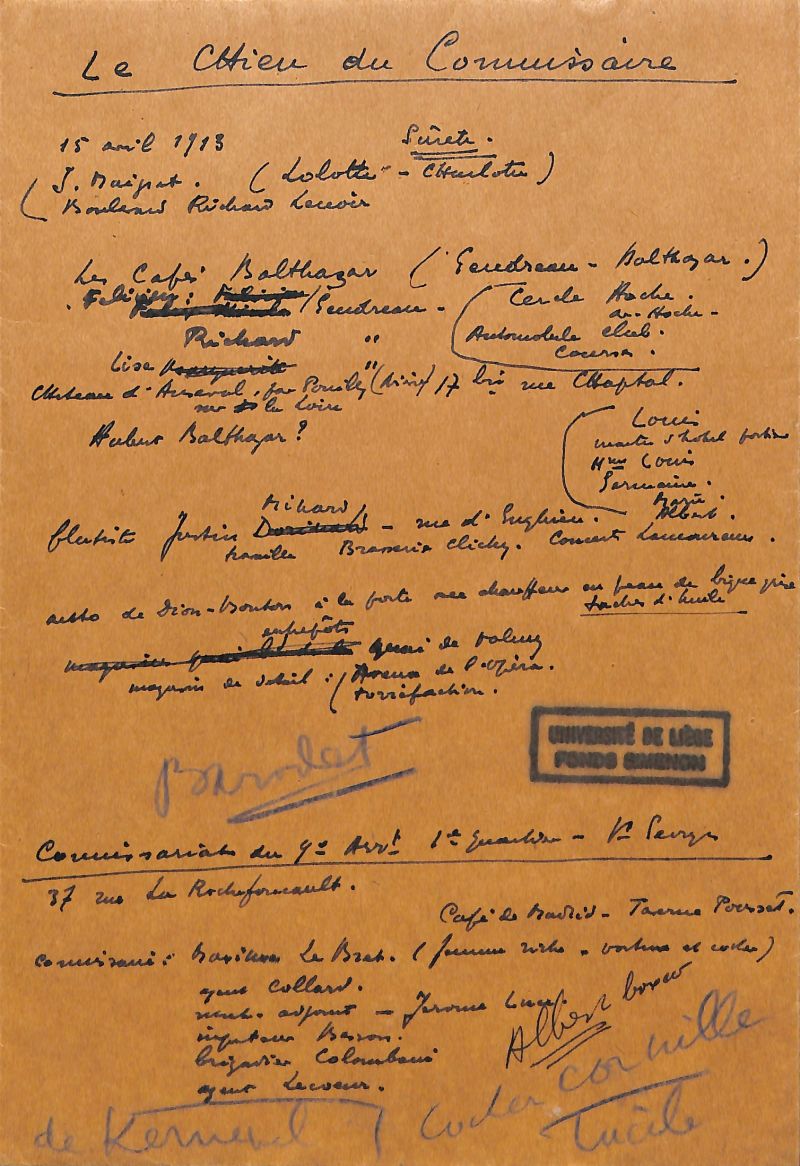 Le Chien du Commissaire
15 avril 1913 Sûreté.
J. Maigret. (Lolotte - Charlotte)
Boulevard Richard Lenoir
Les Cafés Balthazar (Gendreau - Balthazar.)
Félicien: Gendreau - Cercle Hoche.
av. Hoche -
Richard " Automobile Club.
Courses.
Lise "
Château d'Anseval, par Pouilly 17 bis rue Chaptal.
sur la Loire
Hubert Balthazar?
Louis
maître d'hôtel
Mme Louis
Germaine.
Marie.
Albert.
Minard
flûtiste Justin - rue d'Enghien.
travaille Brasserie Clichy. Concert Lamoureux.
auto de Dion-Bouton à la porte avec chauffeur en peau de bique grise
taches d'huile
entrepôts
quai de Valmy
magasin de détail: Avenue de l'Opéra.
torréfaction.
Barodet
UNIVERSITÉ DE LIÈGE
FONDS SIMENON
Commissariat du 9e Arrt 1e Quartier - St Georges
37 rue La Rochefoucault.
Café de Madrid - Taverne Pousset.
commissaire: Maxime Le Bret. (femme riche - voiture et cocher)
agent Collard.
adjoint - Jérome
inspecteur Besson.
brigadier Colombani
agent Lecoeur.
Albert boxeur
de Kernevel / Cocher cornille
Lucile